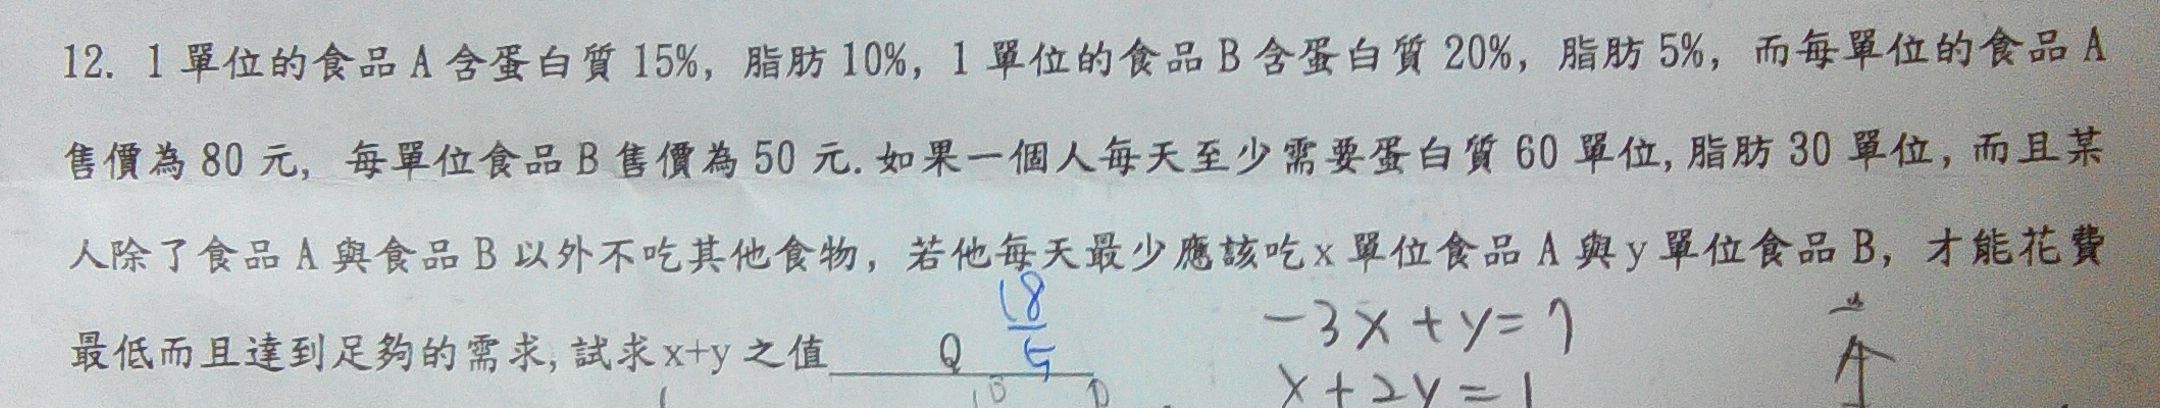 12. 1 單位的食品 A 含蛋白質 15%, 脂肪 10%, 1 單位的食品 B 含蛋白質 20%, 脂肪 5%, 而每單位的食品 A
售價為 80 元, 每單位食品 B 售價為 50 元. 如果一個人每天至少需要蛋白質 60 單位, 脂肪 30 單位, 而且某
人除了食品 A 與食品 B 以外不吃其他食物, 若他每天最少應該吃 x 單位食品 A 與 y 單位食品 B, 才能花費
最低而且達到足夠的需求, 試求 x+y 之值
Q
18
5
-3x+y=7
x+2y=1